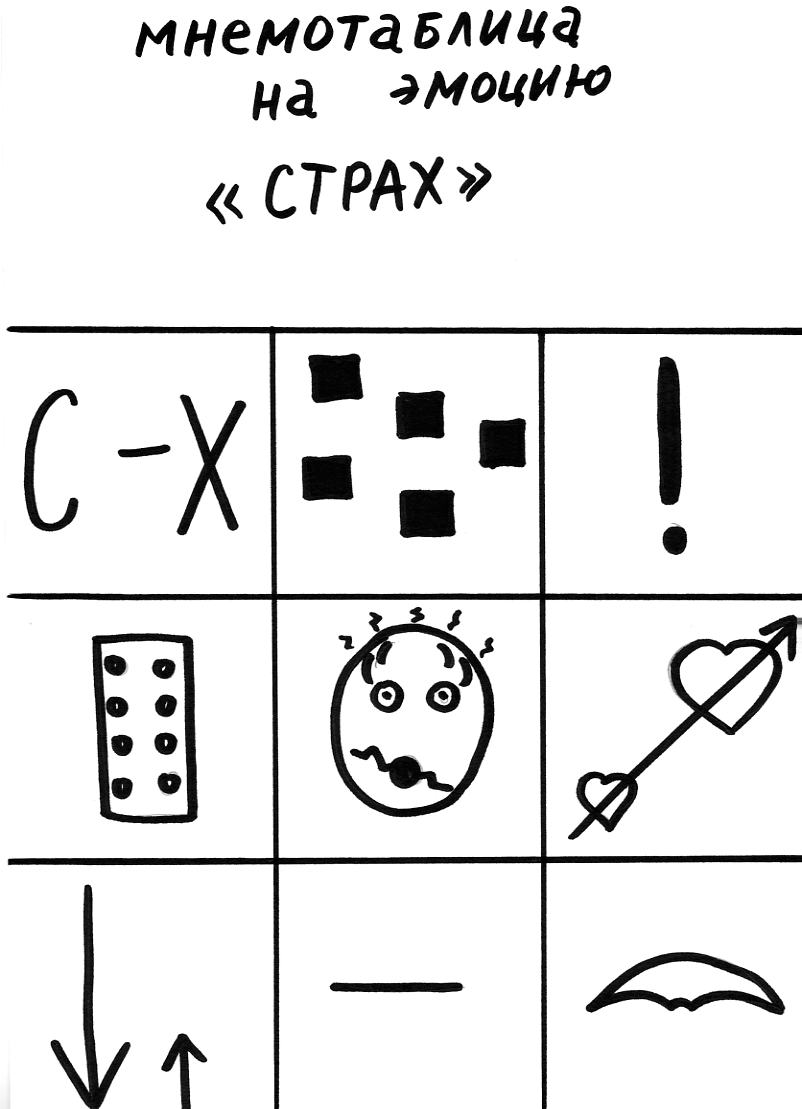 мнемотаблица
на эмоцию
«СТРАХ»
С - Х
!